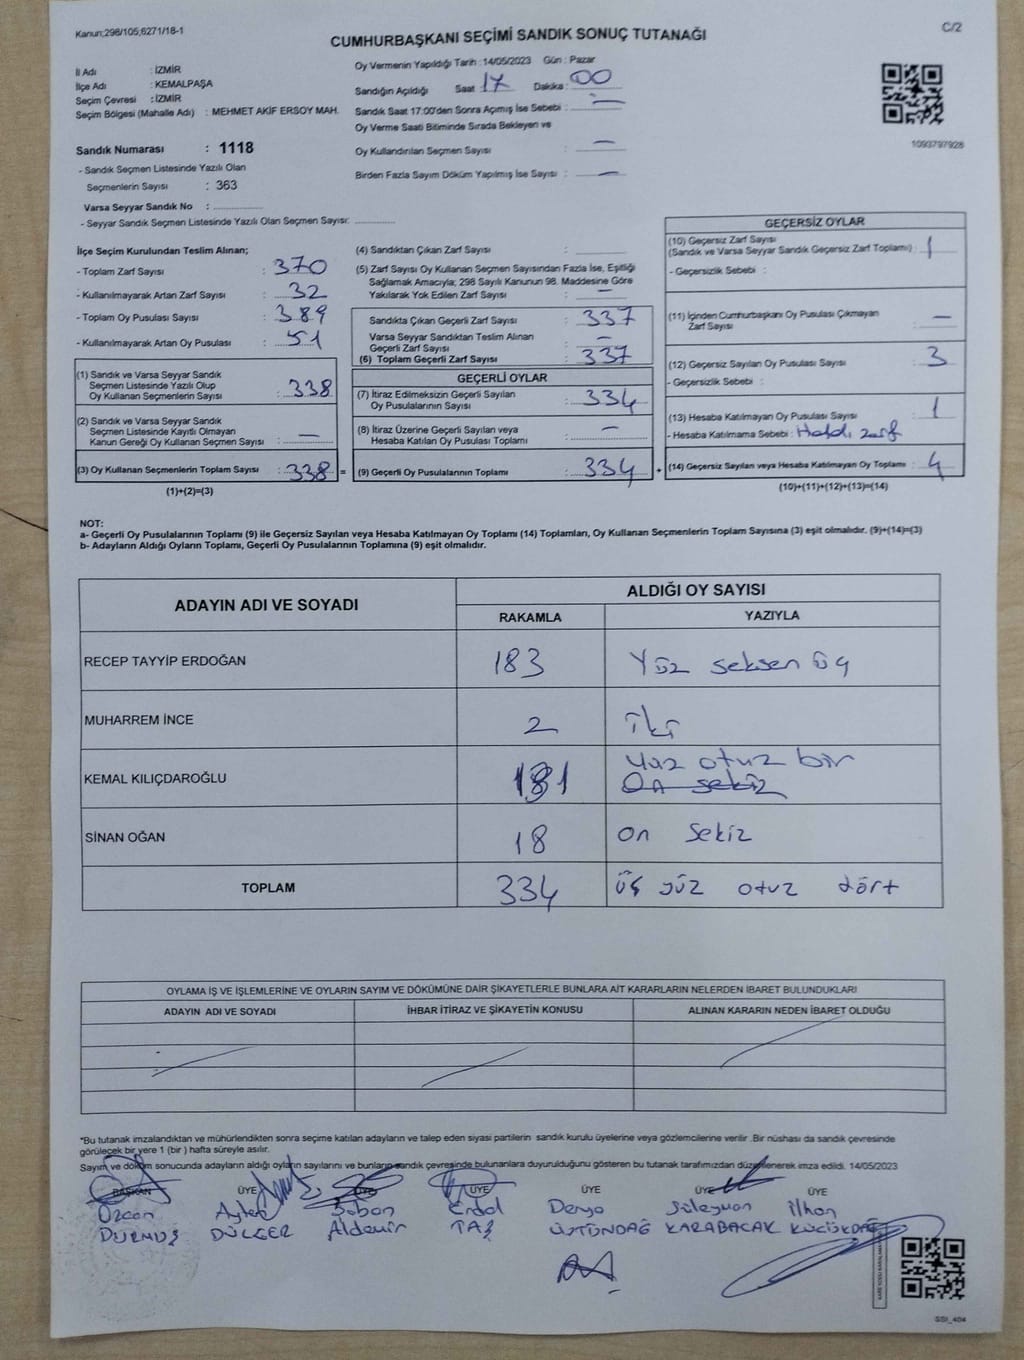 Kanun;298/105;6271/18-1
C/2
CUMHURBAŞKANI SEÇİMİ SANDIK SONUÇ TUTANAĞI
İl Adı : İZMİR
İlçe Adı : KEMALPAŞA
Seçim Çevresi : İZMİR
Seçim Bölgesi (Mahalle Adı) : MEHMET AKİF ERSOY MAH.
Sandık Numarası : 1118
- Sandık Seçmen Listesinde Yazılı Olan
Seçmenlerin Sayısı : 363
Varsa Seyyar Sandık No :
- Seyyar Sandık Seçmen Listesinde Yazılı Olan Seçmen Sayısı:
Oy Vermenin Yapıldığı Tarih : 14/05/2023 Gün : Pazar
Sandığın Açıldığı Saat : 17 Dakika : 00
Sandık Saat 17:00'den Sonra Açımış İse Sebebi : —
Oy Verme Saati Bitiminde Sırada Bekleyen ve
Oy Kullandırılan Seçmen Sayısı : —
Birden Fazla Sayım Döküm Yapılmış İse Sayısı : —
1093797928
İlçe Seçim Kurulundan Teslim Alınan;
- Toplam Zarf Sayısı : 370
- Kullanılmayarak Artan Zarf Sayısı : 32
- Toplam Oy Pusulası Sayısı : 389
- Kullanılmayarak Artan Oy Pusulası : 51
(1) Sandık ve Varsa Seyyar Sandık
Seçmen Listesinde Yazılı Olup
Oy Kullanan Seçmenlerin Sayısı : 338
(2) Sandık ve Varsa Seyyar Sandık
Seçmen Listesinde Kayıtlı Olmayan
Kanun Gereği Oy Kullanan Seçmen Sayısı : —
(3) Oy Kullanan Seçmenlerin Toplam Sayısı : 338 =
(1)+(2)=(3)
(4) Sandıktan Çıkan Zarf Sayısı :
(5) Zarf Sayısı Oy Kullanan Seçmen Sayısından Fazla İse, Eşitliği
Sağlamak Amacıyla; 298 Sayılı Kanunun 98. Maddesine Göre
Yakılarak Yok Edilen Zarf Sayısı : —
Sandıkta Çıkan Geçerli Zarf Sayısı : 337
Varsa Seyyar Sandıktan Teslim Alınan
Geçerli Zarf Sayısı : —
(6) Toplam Geçerli Zarf Sayısı : 337
GEÇERLİ OYLAR
(7) İtiraz Edilmeksizin Geçerli Sayılan
Oy Pusulalarının Sayısı : 334
(8) İtiraz Üzerine Geçerli Sayılan veya
Hesaba Katılan Oy Pusulası Toplamı : —
(9) Geçerli Oy Pusulalarının Toplamı : 334 +
GEÇERSİZ OYLAR
(10) Geçersiz Zarf Sayısı
(Sandık ve Varsa Seyyar Sandık Geçersiz Zarf Toplamı) : 1
- Geçersizlik Sebebi :
(11) İçinden Cumhurbaşkanı Oy Pusulası Çıkmayan
Zarf Sayısı : —
(12) Geçersiz Sayılan Oy Pusulası Sayısı : 3
- Geçersizlik Sebebi :
(13) Hesaba Katılmayan Oy Pusulası Sayısı : 1
- Hesaba Katılmama Sebebi : zarf
(14) Geçersiz Sayılan veya Hesaba Katılmayan Oy Toplamı : 4
(10)+(11)+(12)+(13)=(14)
NOT:
a- Geçerli Oy Pusulalarının Toplamı (9) ile Geçersiz Sayılan veya Hesaba Katılmayan Oy Toplamı (14) Toplamları, Oy Kullanan Seçmenlerin Toplam Sayısına (3) eşit olmalıdır. (9)+(14)=(3)
b- Adayların Aldığı Oyların Toplamı, Geçerli Oy Pusulalarının Toplamına (9) eşit olmalıdır.
ADAYIN ADI VE SOYADI
ALDIĞI OY SAYISI
RAKAMLA YAZIYLA
RECEP TAYYİP ERDOĞAN 183 Yüz seksen üç
MUHARREM İNCE 2 iki
KEMAL KILIÇDAROĞLU 131 yüz otuz bir
On sekiz
SİNAN OĞAN 18 on sekiz
TOPLAM 334 üç yüz otuz dört
OYLAMA İŞ VE İŞLEMLERİNE VE OYLARIN SAYIM VE DÖKÜMÜNE DAİR ŞİKAYETLERLE BUNLARA AİT KARARLARIN NELERDEN İBARET BULUNDUKLARI
ADAYIN ADI VE SOYADI İHBAR İTİRAZ VE ŞİKAYETİN KONUSU ALINAN KARARIN NEDEN İBARET OLDUĞU
*Bu tutanak imzalandıktan ve mühürlendikten sonra seçime katılan adayların ve talep eden siyasi partilerin sandık kurulu üyelerine veya gözlemcilerine verilir .Bir nüshası da sandık çevresinde
görülecek bir yere 1 (bir ) hafta süreyle asılır.
Sayım ve döküm sonucunda adayların aldığı oyların sayılarını ve bunların sandık çevresinde bulunanlara duyurulduğunu gösteren bu tutanak tarafımızdan düzenlenerek imza edildi. 14/05/2023
BAŞKAN ÜYE ÜYE ÜYE ÜYE ÜYE ÜYE
Özcan Ayten Şaban Erdal Derya Süleyman İlhan
DURMUŞ DÜLGER Aldemir TAŞ ÜSTÜNDAĞ KARABACAK KÜÇÜKDAĞ
SSI_404